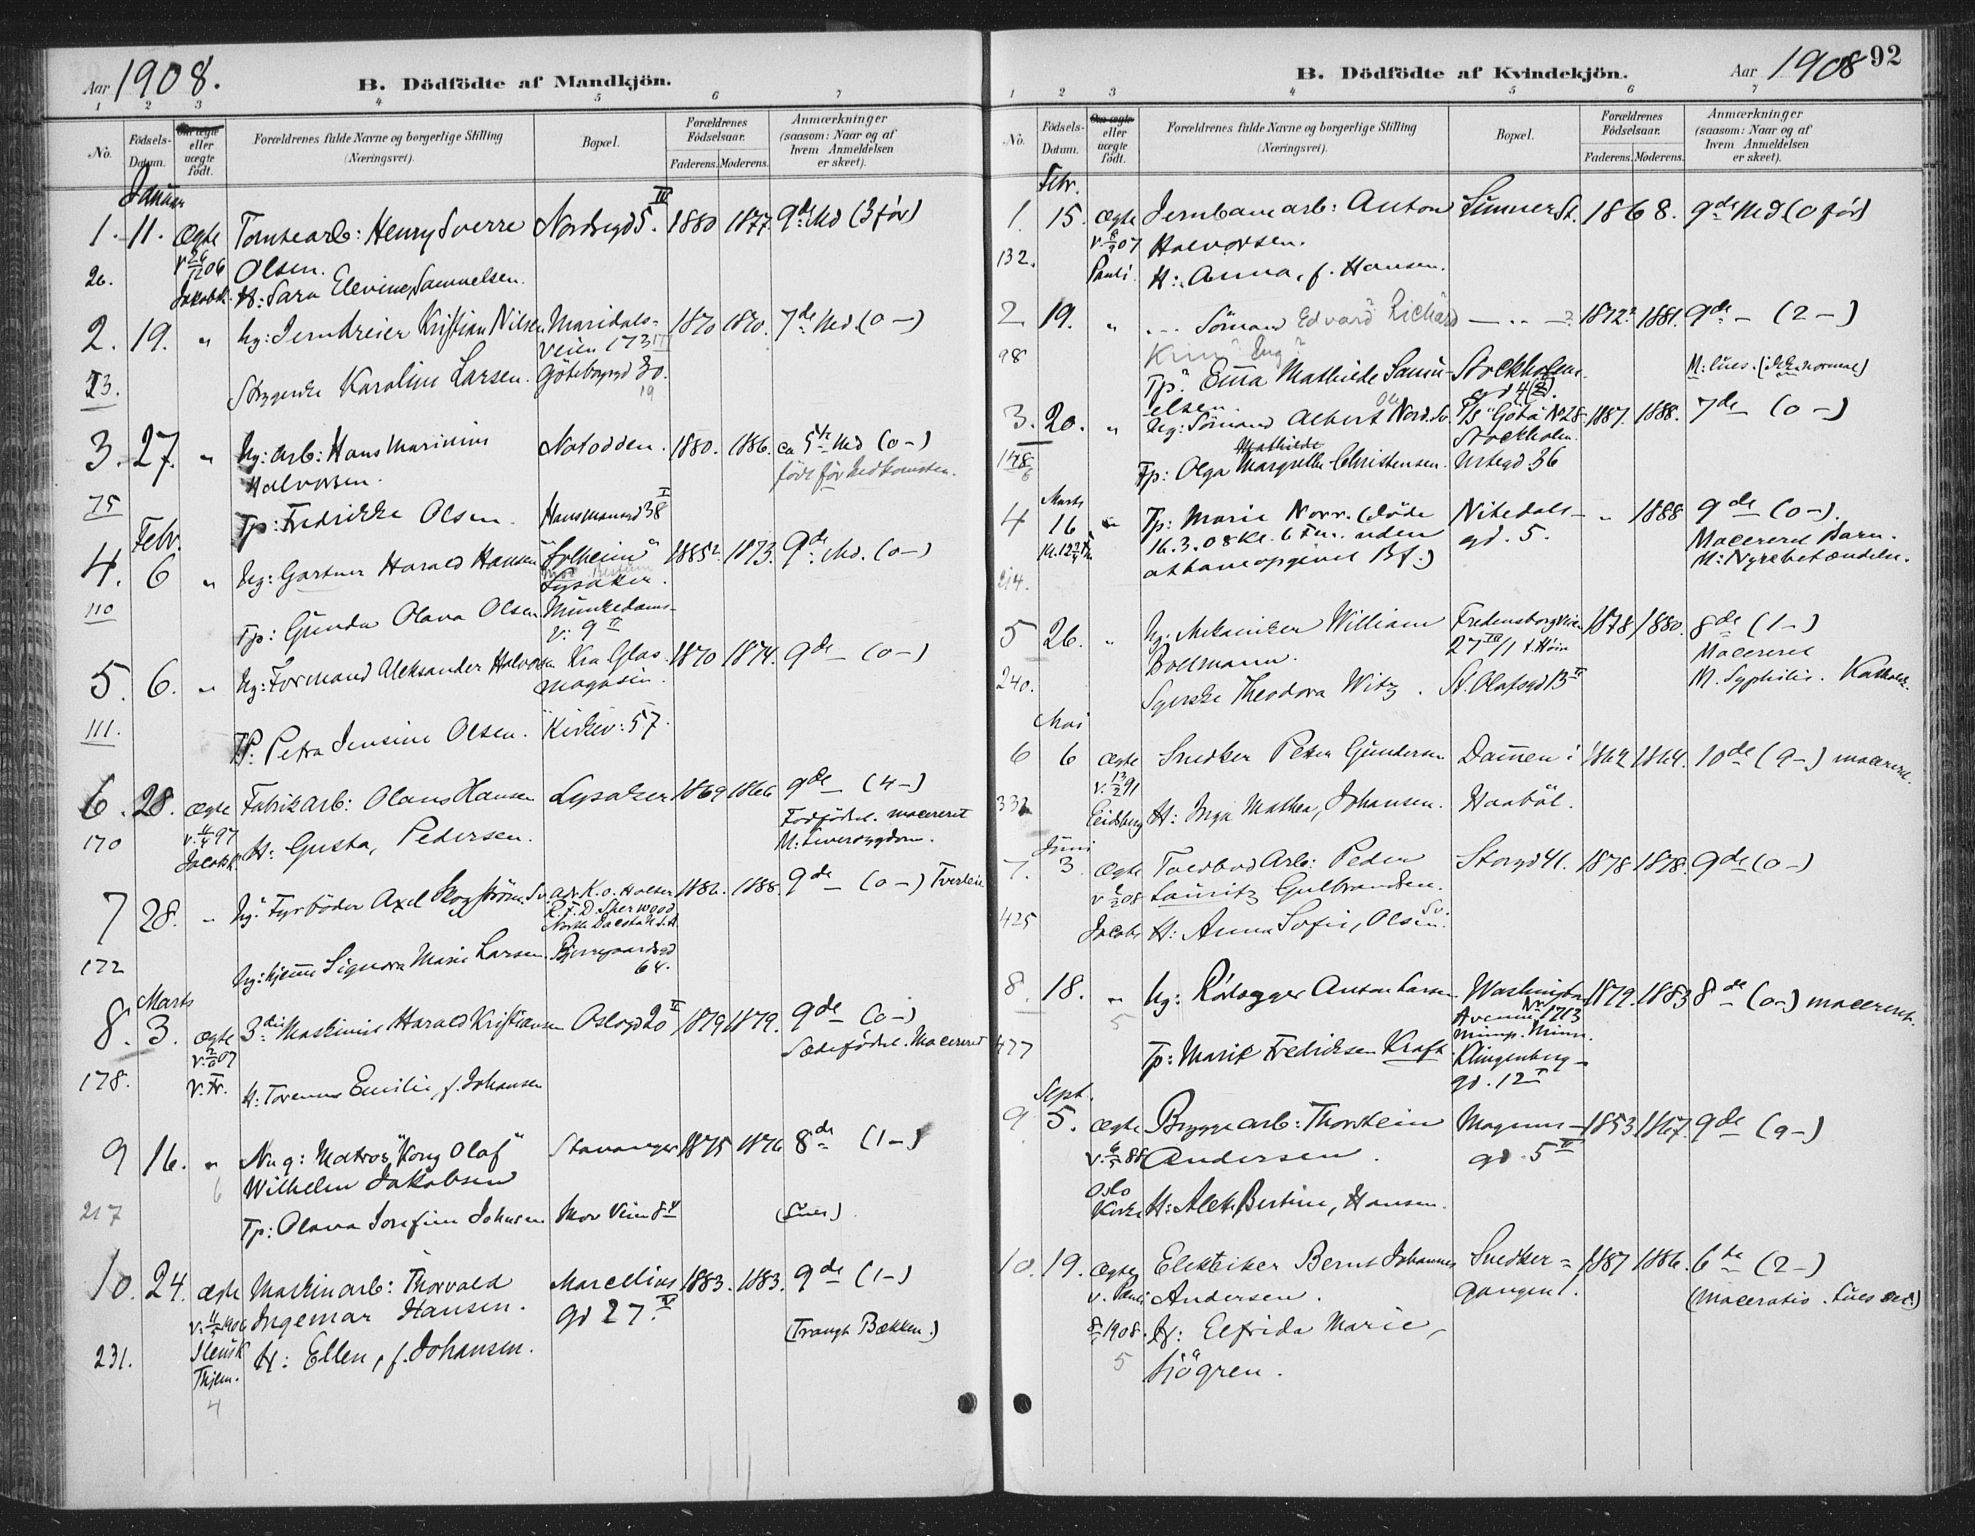 Aar 1908.
B. Dödfödte af Mandkjön.
1 2 3 4 5 6 7
No.
Födsels-
Datum.
Om ægte
eller
uægte
født.
Forældrenes fulde Navne og borgerlige Stilling
(Næringsvei).
Bopæl.
Forældrenes
Födselsaar.
Faderens. Moderens.
Anmærkninger
(saasom: Naar og af
hvem Anmeldelsen
er skeet).
Januar
1. 11. ægte Tomtearb: Henry Sverre Nordregd 5 IV 1880 1877. 9de Md (3 før)
26. v 26/12 06 Olsen.
Jakobk. H: Sara Elevine, Samuelsen.
2. 19. " Ug: Jerndreier Kristian Nilsen Maridals- 1870 1870. 7de Md (0 —)
Veien 173
23. Strygerske Karoline Larsen. Göteborggd 30.
19
3. 27. " Ug: Arb: Hans Marinius Notodden. 1880. 1886. ca 5te Md (0 —)
Halvorsen. født før Nedkomsten.
75 Tp: Fredrikke Olsen. Hausmannsgd 38 I
Febr.
4. 6 " Ug: Gartner Harald Hansen "Solheim" 1885? 1873. 9de Md. (0 —)
Lysaker.
110 Tp: Gunda Olava Olsen Munkedams-
v: 9 II
5. 6. " Ug: Formand Aleksander Halvorsen Kra Glas 1870 1874. 9de — (0 —)
magasin.
111. Tp: Petra Jensine Olsen. Kirkev: 57.
6. 28. ægte Fabrikarb: Olaus Hansen Lysaker 1869 1866 9de — (4 —)
v. 4/4 97 Fodfødsel. macereret
170 Jacobsk. H: Gusta, Pedersen. M: Leversygdom.
7 28. " Ug: Fyrbøder Axel Skogström. Sv. adr. K. O. Holter 1886. 1888. 9de — (0 —) Tverleie
R. F. D. Sherwood
North Dacota U.S.A.
172 Ug: hjemme Signora Marie Larsen. Bjerregaardsgd
64.
Marts
8. 3. ægte 3die Maskinist Harald Kristiansen Oslogd 20 II 1879 1879. 9de — (0 —)
v. 2/6 07 Sædefødsel. Macereret
178. V. Fr. H: Torenus Emilie, f. Johansen
9 16. " Nu g: Matros "Kong Olaf" Stavanger 1875 1876 8de — (1 —)
6 Wilhelm Jakobsen
217 Tp: Olava Josefine Johnsen Mor Veien 8 II (Lues).
10. 24. ægte Maskinarb: Thorvald Marcellius 1883. 1883. 9de (1 —)
Ingemar Hansen. gd 27. IV
(Trangt Bækken.)
231. H: Ellen, f. Johansen.
Thjem.
4
B. Dödfödte af Kvindekjön.
Aar 1908 92
1 2 3 4 5 6 7
No.
Födsels-
Datum.
Om ægte
eller
uægte
født.
Forældrenes fulde Navne og borgerlige Stilling
(Næringsvei).
Bopæl.
Forældrenes
Födselsaar.
Faderens. Moderens.
Anmærkninger
(saasom: Naar og af
hvem Anmeldelsen
er skeet).
Febr.
1. 15. ægte Jernbanearb: Anton 1868. 9de Md (0 før)
v 8/9 07 Halvorsen.
132. Pauli. H: Anna, f. Hansen.
2 19. " Sömand Edvard Richard — .. — ? 1872? 1881. 9de — (2 —)
98 M: Lues. (ikke normal)
Tp: Emma Mathilde Samu- Stockholms-
elsen. gd 4 (IV).
3. 20. " Ug: Sömand Albert Ole Nord. Sv. P/S "Göta" No 28 1887. 1888. 7de — (0 —)
Stockholm.
148 Mathilde
Tp: Olga Margrethe Christensen. Urtegd 36
Marts
4 16 " Tp: Marie Norr. (døde Nitedals- " 1888 9de — (0 —).
16.3.08 Kl. 6 Fm. uden gd. 5. Macereret Barn.
at have opgivet Bf.) M: Nyrebetændelse.
214.
5 26. " Ug: Mekaniker William Fredensborgveien 1878 1880. 8de (1 —)
Bollmann. 27 III/1 t. Høire Macereret
240. Syerske Theodora Witz. St. Olafsgd 13 II M. Syphilis. Katholik.
Mai
6 6 ægte Snedker Peter Gundersen Dammen i 1862 1864. 10de (9 —) macereret.
v. 13/2 91
332 Eidsberg H: Inga Mathea, Johansen. Haabøl.
Juni
7. 3. ægte Toldbod Arb: Peder Storgd 41. 1878 1878. 9de (0 —)
Lauritz Gulbrandsen.
425 Jacobs H: Anna Sofie, Olsen. Sv.
8. 18. " Ug: Rörlægger Anton Larsen Washington 1879. 1883 8de — (0 —) macereret.
5 Avenue Nr 1713
Minnp. Minn.
477 Tp: Marie Fredriksen Kraft Klingenberg-
gd. 12 I
Sept.
9 5. ægte Bryggearb: Thorstein Magnus- 1853. 1867. 9de (9 —)
Andersen. gd. 5 II
Oslo
Kirke H: Alet Bertine, Hansen.
10. 19. ægte Elektriker Bernt Johannes Snedker- 1887 1886. 6te — (2 —)
v. Pauli Andersen. gangen 1. (Maceratio. Lues
1908. H: Elfrida Marie,
5 Sjögren.